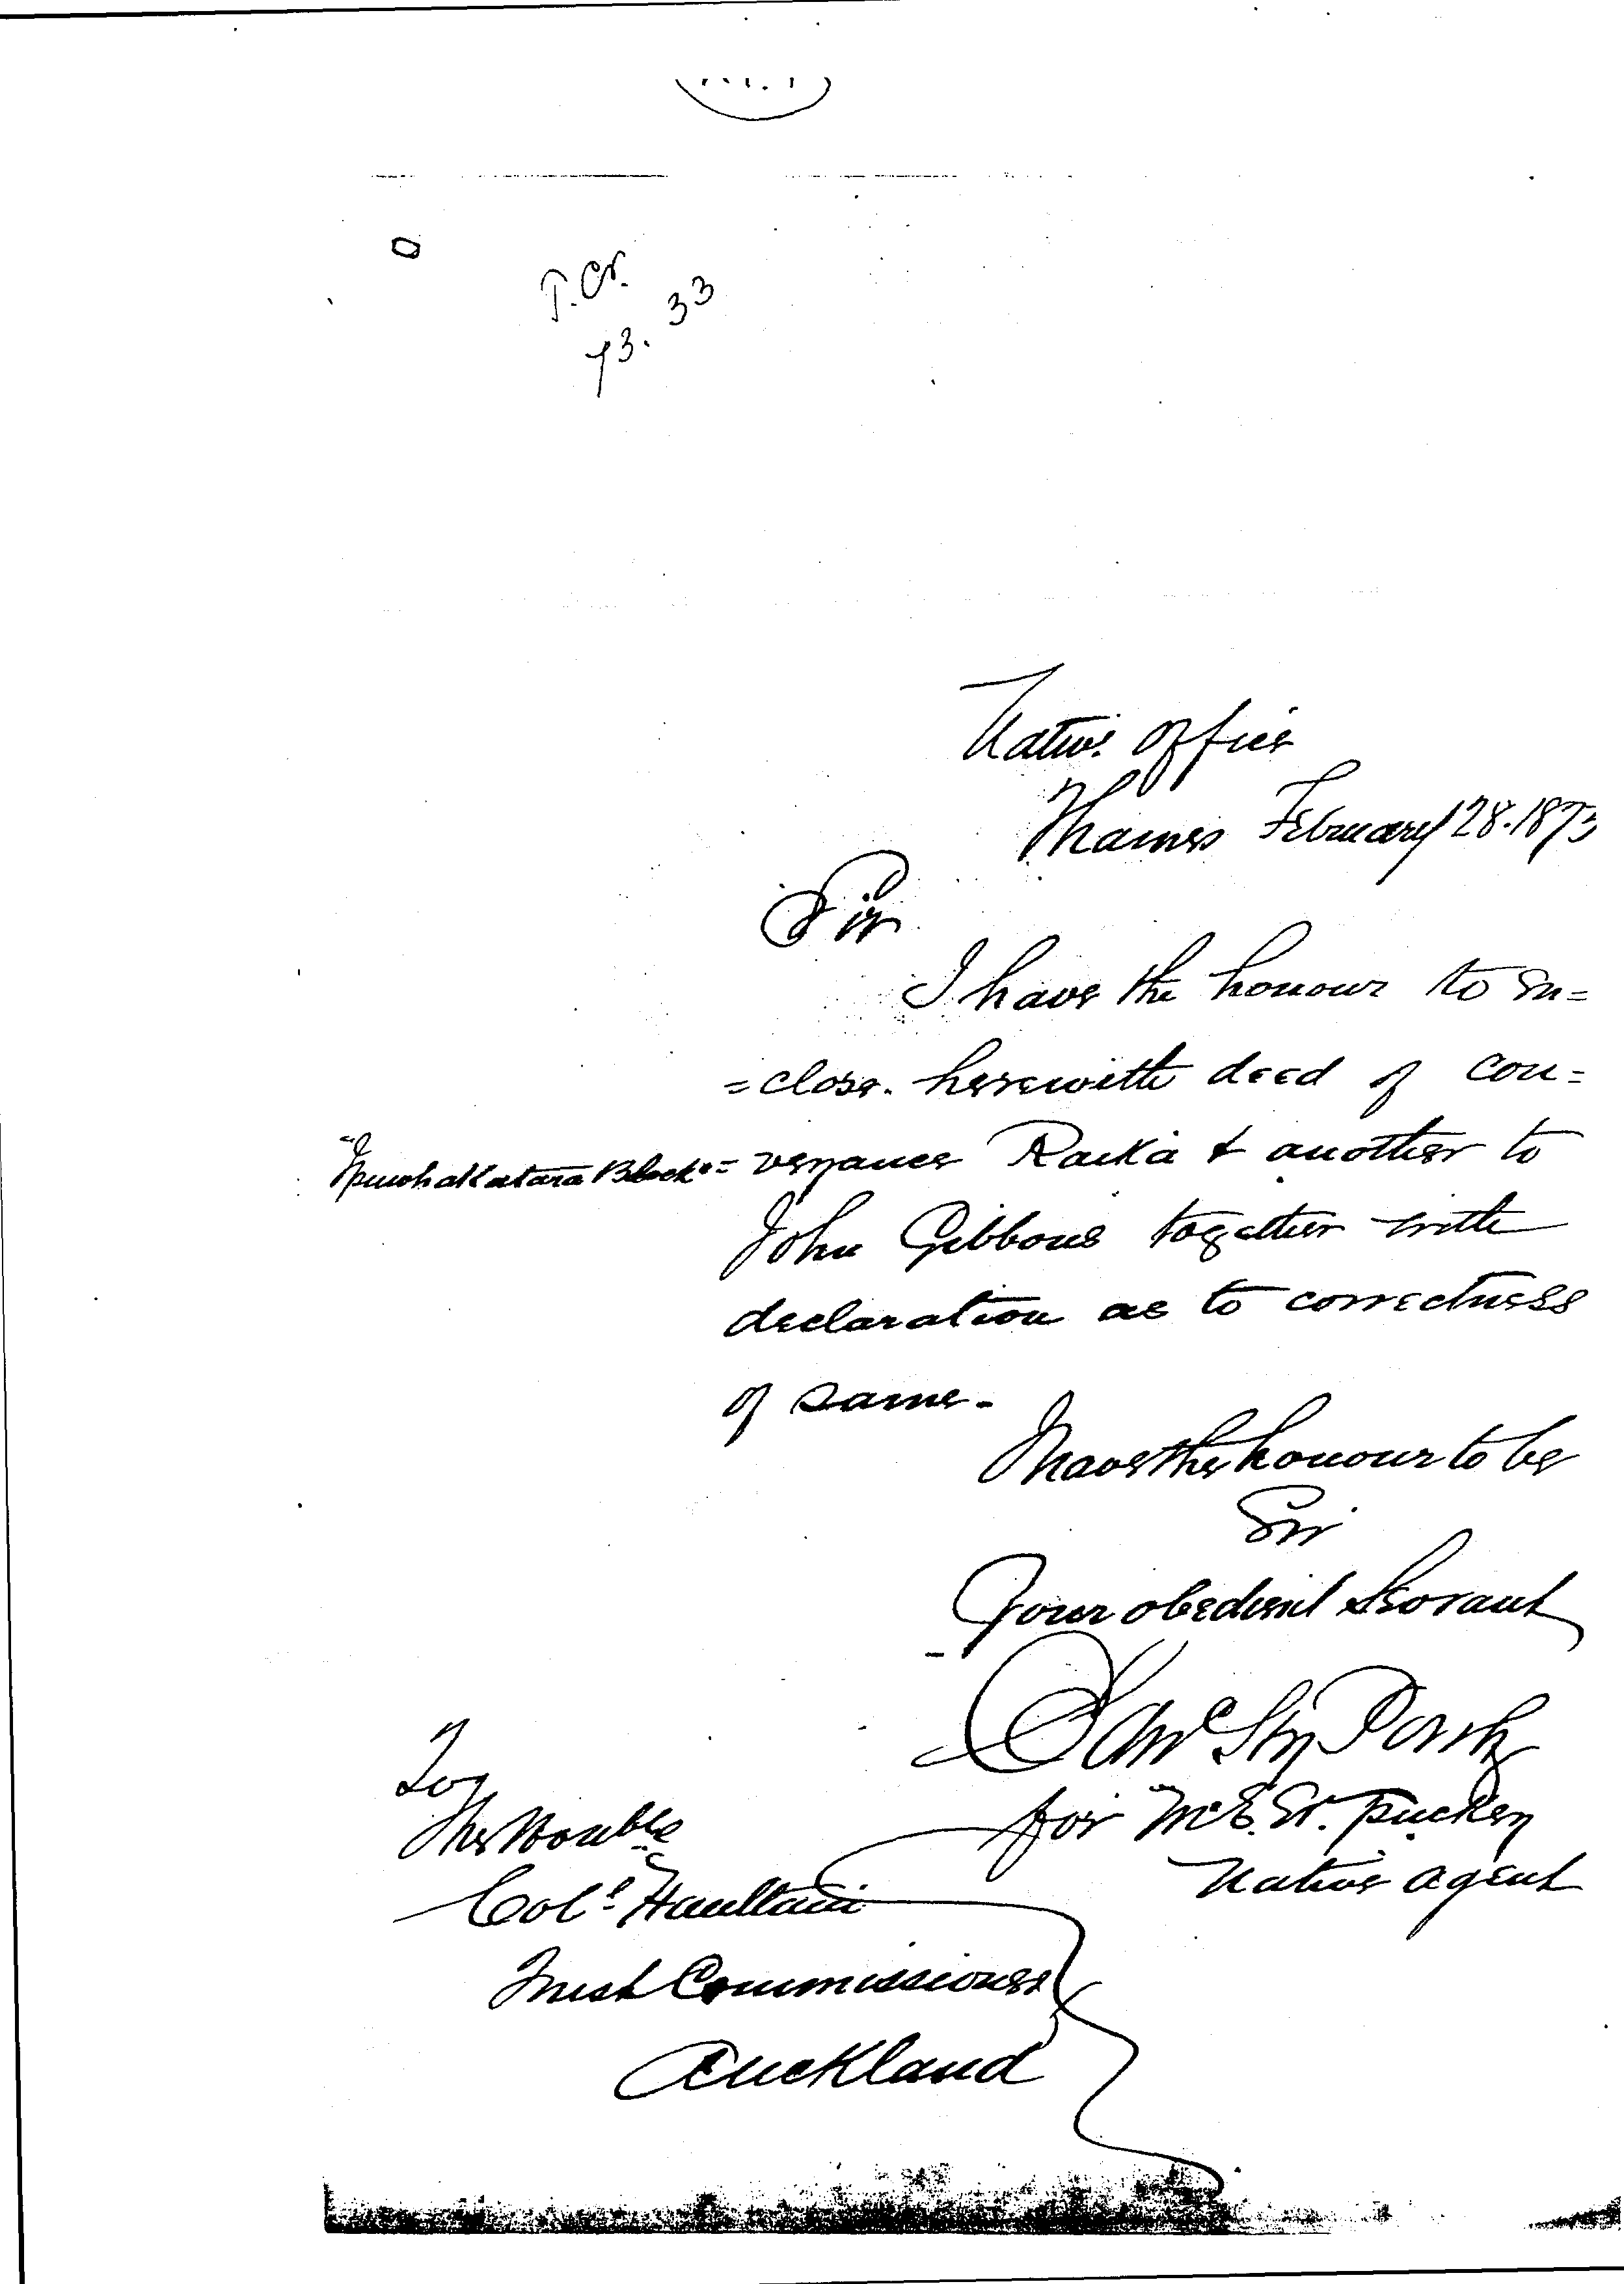 T.Cr.
73. 33
Native Office
Thames February 28. 1873
Sir
I have the honour to en=
=close. herewith deed of con=
Block =veyance Raika & another to
John Gibbons together with
declaration as to correctness
of same.
I have the honour to be
Sir
Your obedient Servant
for Mr E. W. Puckey
Native Agent
To
The Honble
Col. Haultain
Trust Commissioner
Auckland